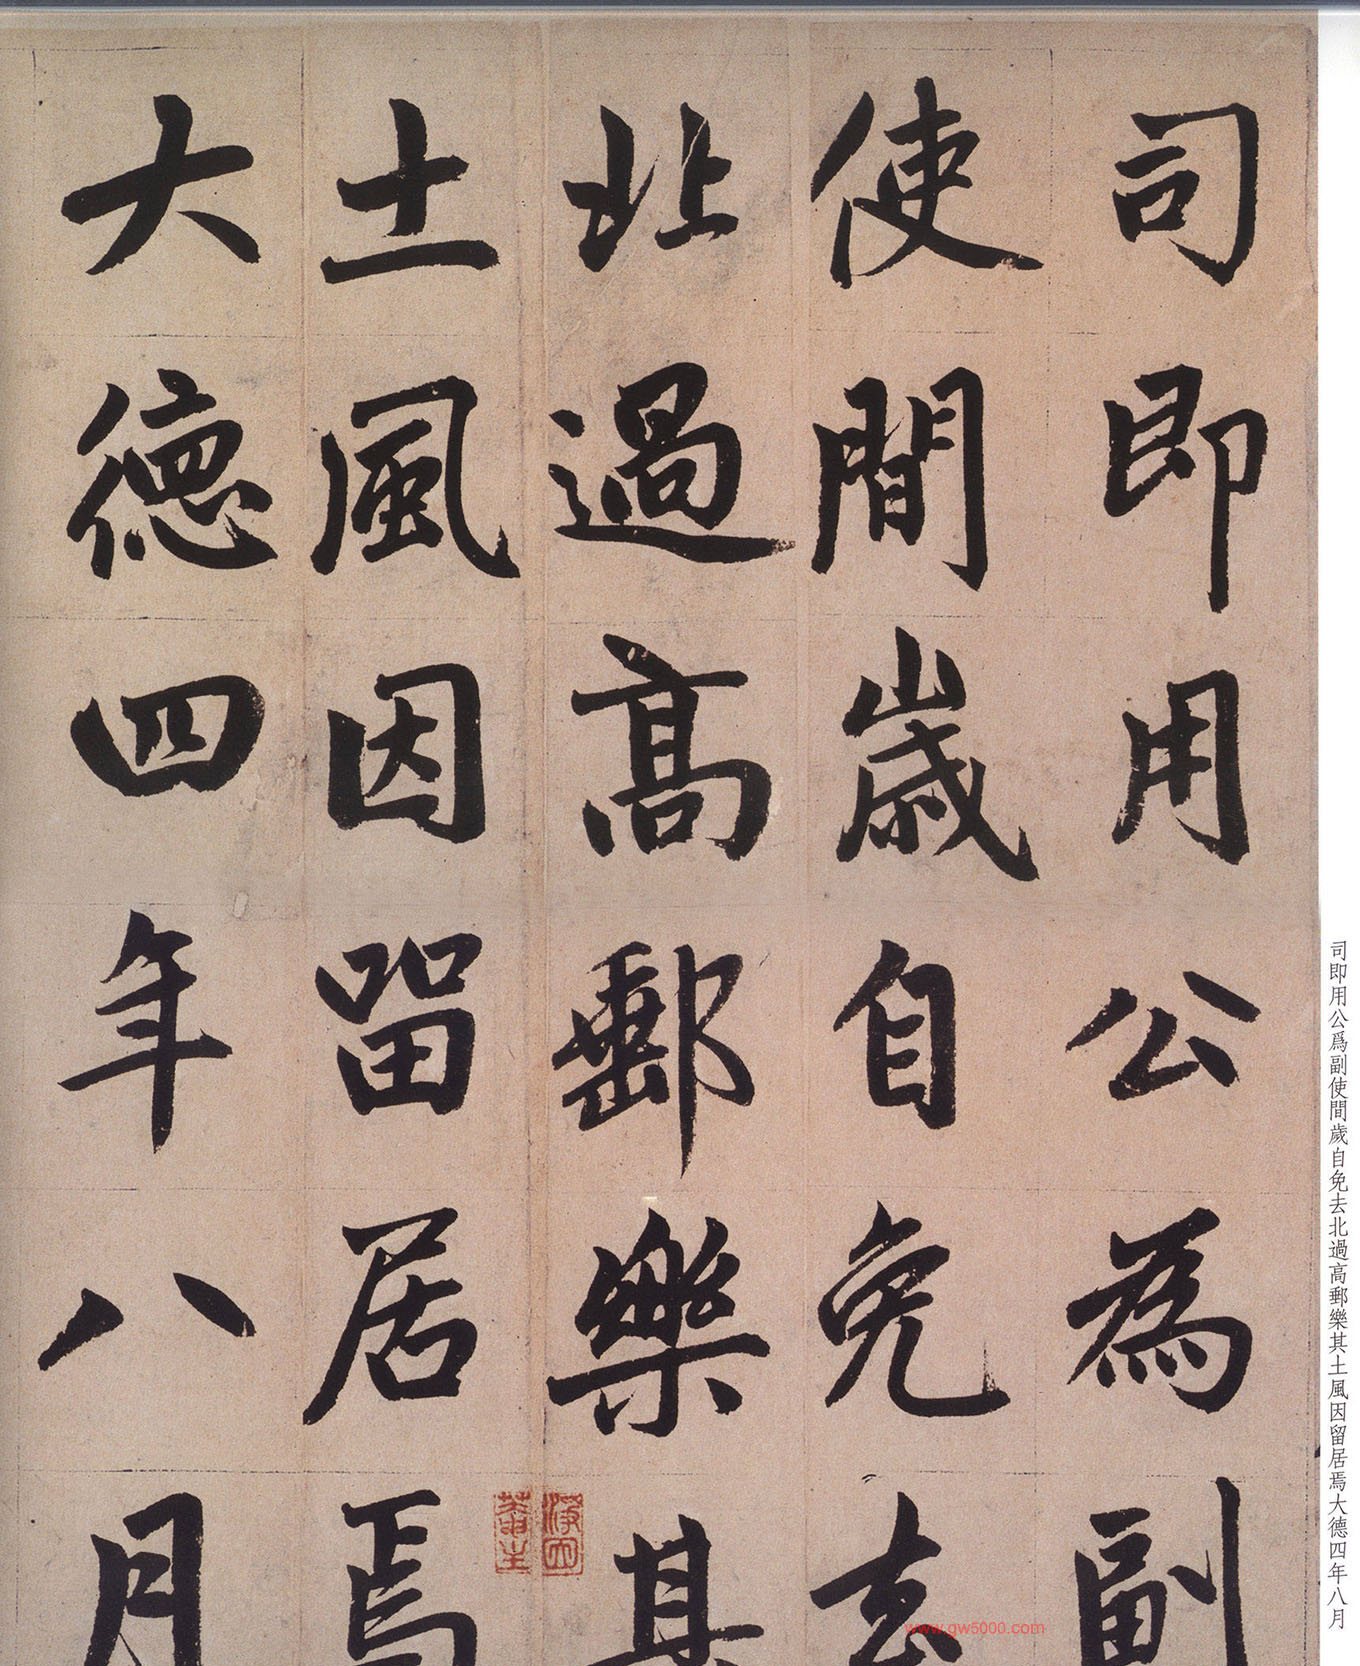 司即用公為副
使間歲自免去
北過高郵樂其
土風因留居焉
大德四年八月
司即用公爲副使間歲自免去北過高郵樂其土風因留居焉大德四年八月
www.gw5000.com